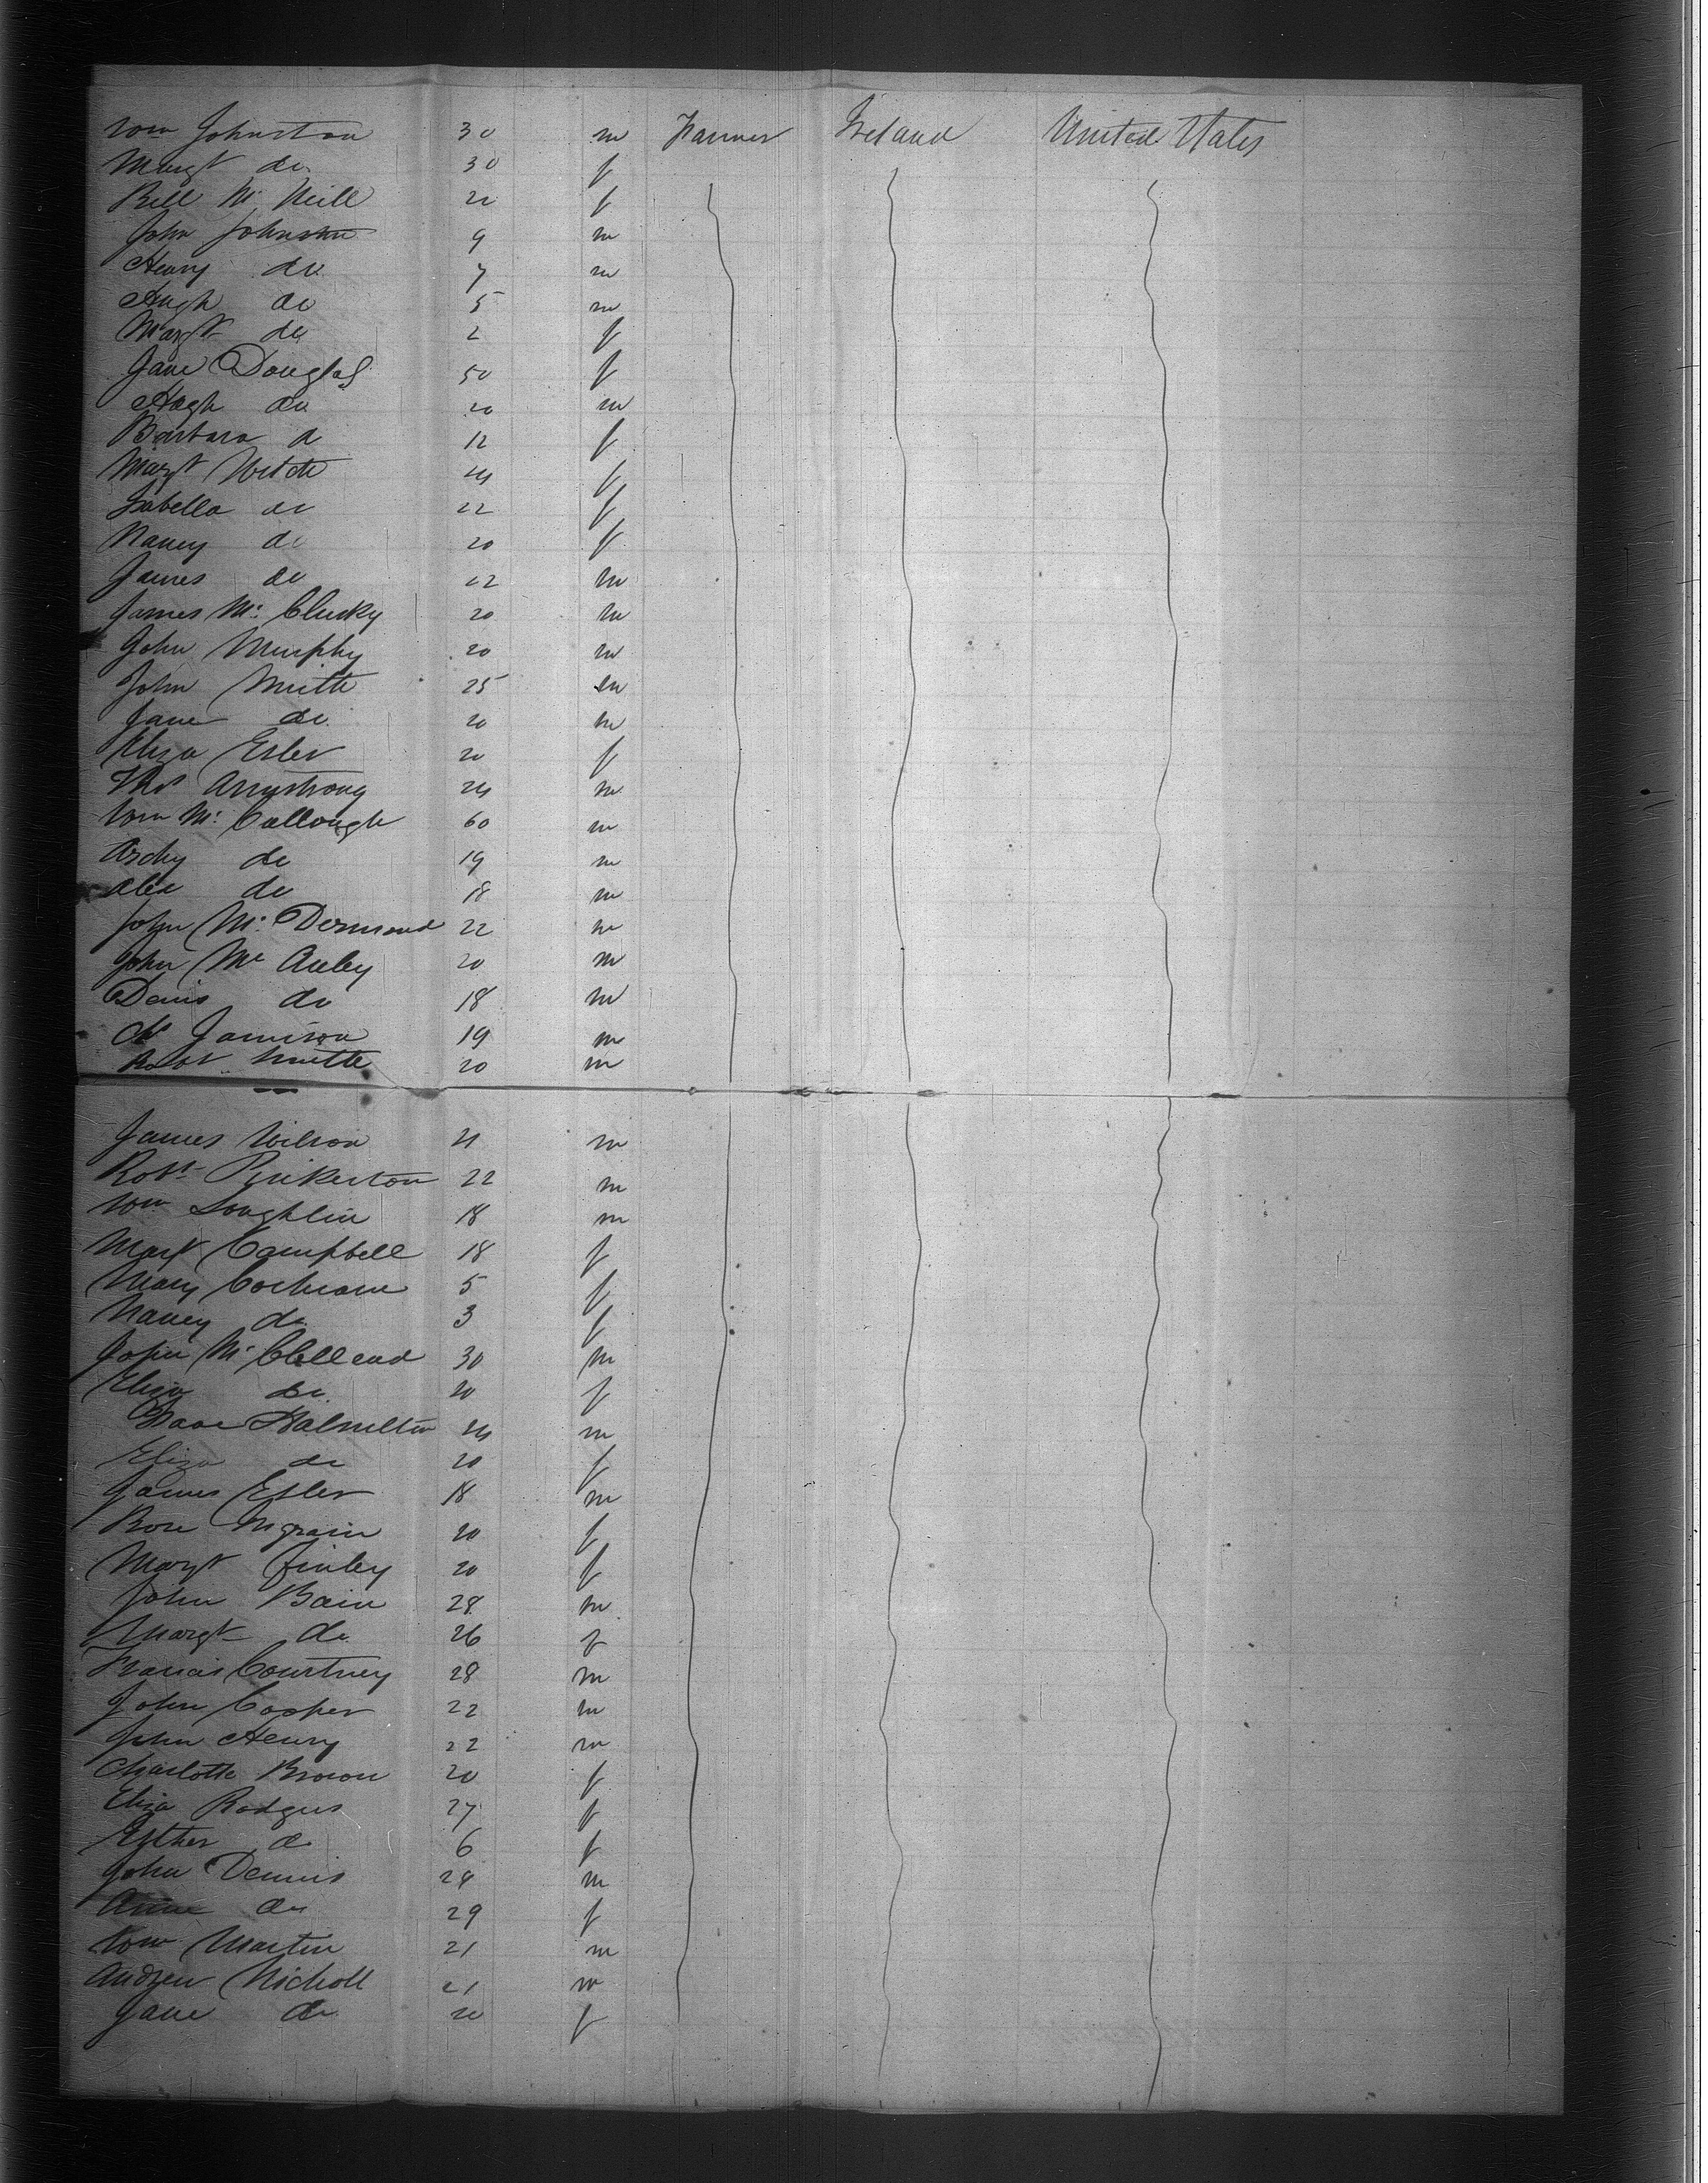 Wm Johnston 30 m Farmer Ireland United States
Margt do 30 f
Bell Mc Neill 20 f
John Johnston 9 m
Henry do 7 m
Hugh do 5 m
Margt do 2 f
Jane Douglas 50 f
Hugh do 20 m
Barbara do 12 f
Margt 24 f
Isabella do 22 f
Nancy do 20 f
James do 22 m
James Mc Clusky 20 m
John Murphy 20 m
John Smith 25 m
Jane do 20 m
Eliza Esler 20 f
Thos Armstrong 24 m
Wm Mc Collough 60 m
Archy do 19 m
Alex do 18 m
John Mc Dermond 22 m
John Mc Auley 20 m
Denis do 18 m
Jamison 19 m
Robt Smith 20 m
James Wilson 21 m
Robt Pinkerton 22 m
Wm Loughlin 18 m
Margt Campbell 18 f
Mary Cochrane 5 f
Nancy do 3 f
John Mc Clelland 30 m
Eliza do 20 f
Isaac Hamilton 24 m
Eliza do 20 f
James Esler 18 m
Rose 20 f
Margt Finley 20 f
John Bain 28 m
Margt do 26 f
Francis Courtney 28 m
John Cooper 22 m
John Henry 22 m
Charlotte Brown 20 f
Eliza Rodgers 27 f
Esther do 6 f
John Dennis 28 m
Anne do 29 f
Wm Martin 21 m
Andrew Nicholl 21 m
Jane do 20 f